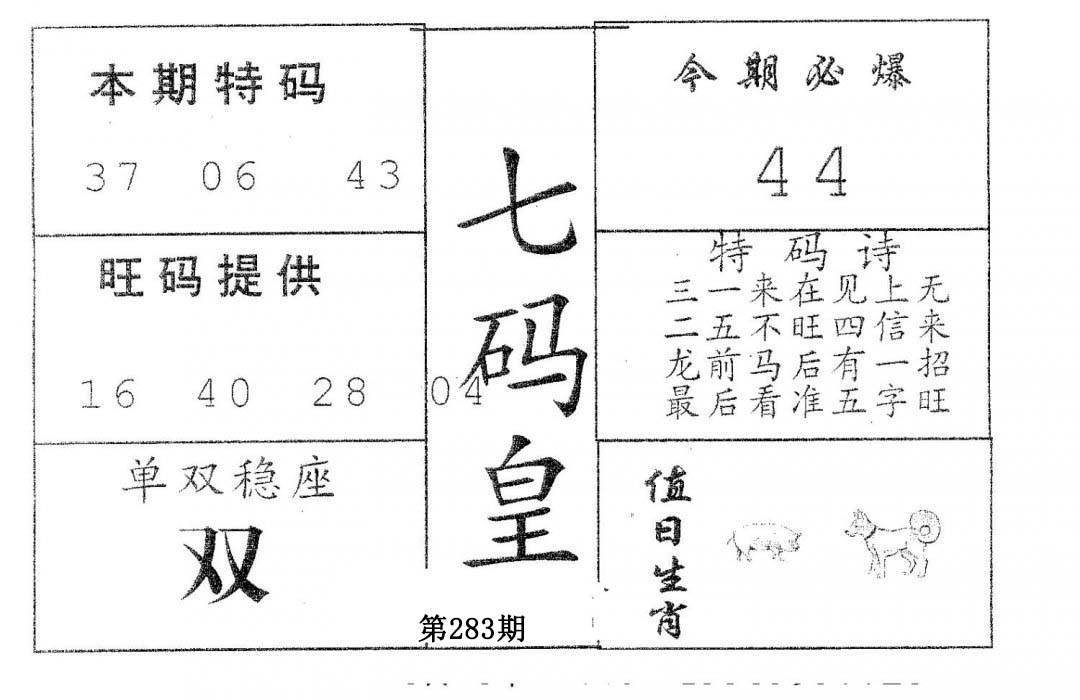 本期特码
37 06 43
旺码提供
16 40 28 04
单双稳座
双
七码皇
第283期
今期必爆
44
特码诗
三一来在见上无
二五不旺四信来
龙前马后有一招
最后看准五字旺
值日生肖